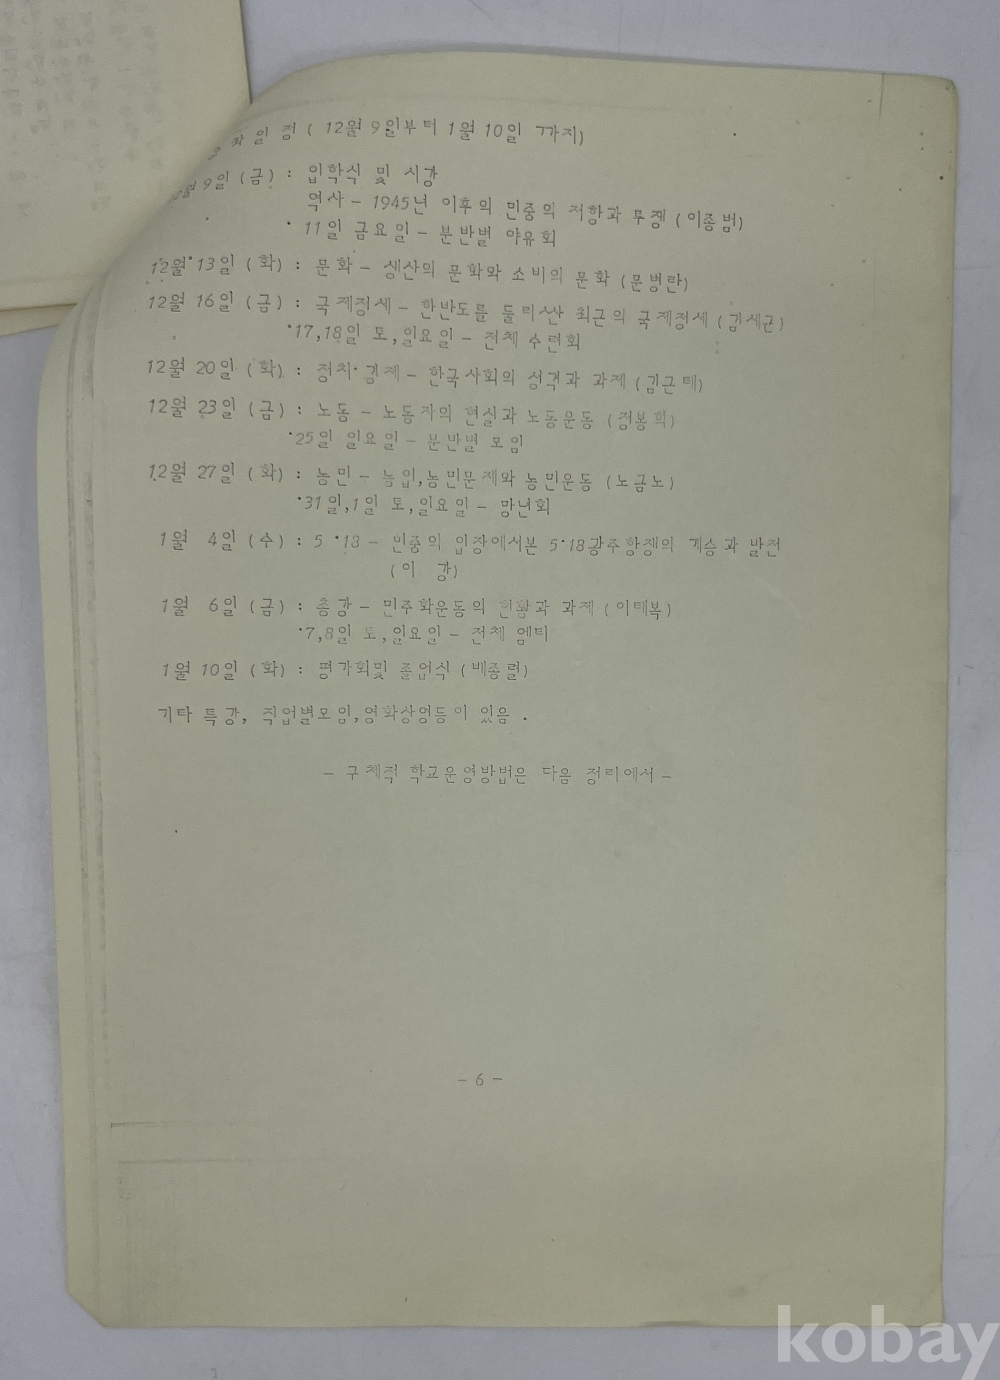 일정 ( 12월 9일부터 1월 10일 까지)
월 9일 (금) : 입학식 및 시강
역사 - 1945년 이후의 민중의 저항과 투쟁 (이종범)
· 11일 금요일 - 분반별 야유회
12월 13일 (화) : 문화 - 생산의 문화와 소비의 문화 (문병란)
12월 16일 (금) : 국제정세 - 한반도를 둘러싼 최근의 국제정세 (김세균)
·17,18일 토,일요일 - 전체 수련회
12월 20일 (화) : 정치·경제 - 한국사회의 성격과 과제 (김근태)
12월 23일 (금) : 노동 - 노동자의 현실과 노동운동 (정봉희)
·25일 일요일 - 분반별 모임
12월 27일 (화) : 농민 - 농업,농민문제와 농민운동 (노금노)
·31일,1일 토,일요일 - 망년회
1월 4일 (수) : 5·18 - 민중의 입장에서본 5·18광주항쟁의 계승과 발전
(이 강)
1월 6일 (금) : 총강 - 민주화운동의 현황과 과제 (이태복)
·7,8일 토,일요일 - 전체 엠티
1월 10일 (화) : 평가회및 졸업식 (배종렬)
기타 특강, 직업별모임,영화상영등이 있음 .
- 구체적 학교운영방법은 다음 정리에서 -
- 6 -
kobay